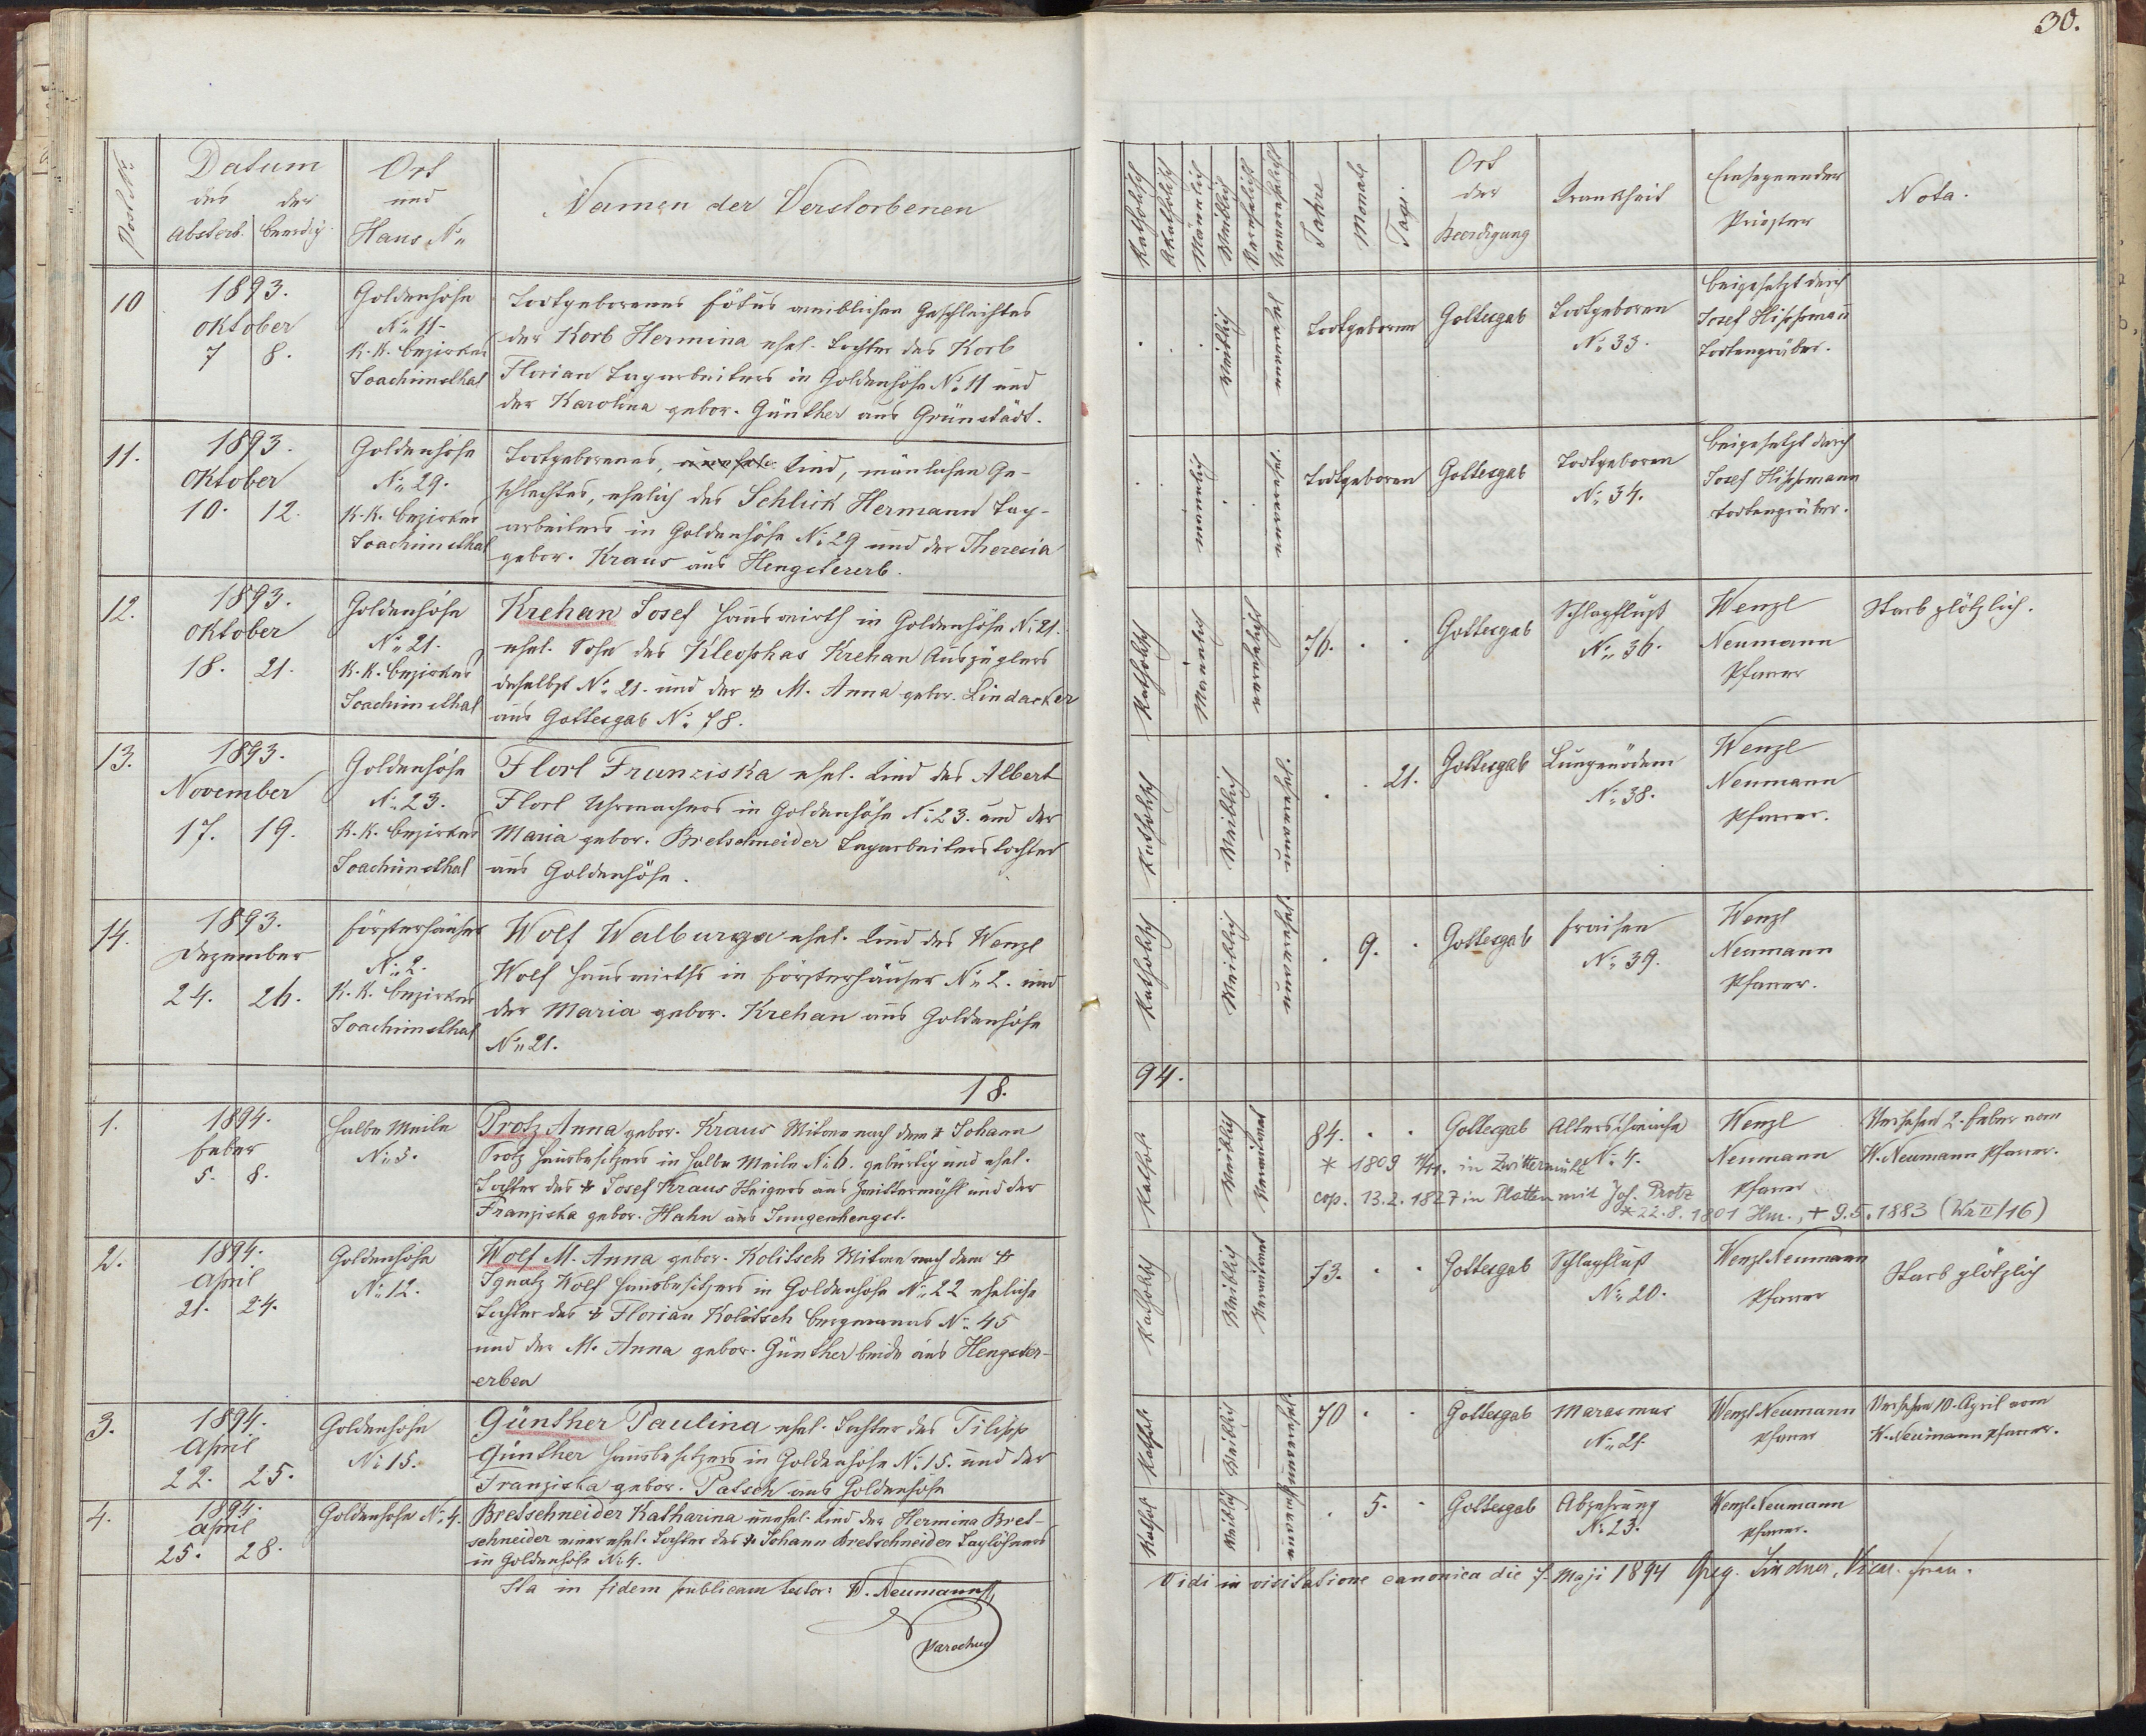 30.
Post No
Datum
des der
Absterb. Beerdig.
Ort
und
Haus No
Namen der Verstorbenen
Katholisch
Akatholisch
Männlich
Weiblich
Verehelicht
Unverehelicht
Jahre
Monate
Tage.
Ort
der
Beerdigung
Krankheit
Einsegnender
Priester
Nota.
10
1893.
Oktober
7 8.
Goldenhöhe
No 11-
K. K. Bezirkes
Joachimsthal
Todtgeborenes Fötus weiblichen Geschlechtes
der Korb Hermina ehel. Tochter des Korb
Florian Tagarbeiters in Goldenhöhe No 11 und
der Karolina gebor. Günther aus Grünstädt.
Weiblich
Todtgeboren
Gottesgab
Todtgeboren
No 33.
beigesetzt durch
Josef
Todtengräber.
11.
1893.
Oktober
10. 12.
Goldenhöhe
No 29.
K. K. Bezirkes
Joachimsthal
Todtgeborenes, Kind, mänlichen Ge-
schlechtes, ehelich des Schlick Hermann Tag-
arbeiters in Goldenhöhe No 29 und der Theresia
gebor. Kraus aus Hengstererb.
männlich
unverehel.
Todtgeboren
Gottesgab
Todtgeboren
No 34.
beigesetzt durch
Josef
Todtengräber.
12.
1893.
Oktober
18. 21.
Goldenhöhe
No 21.
K. K. Bezirkes
Joachimsthal
Krehan Josef Hauswirth in Goldenhöhe No 21.
ehel. Sohn des Kleophas Krehan Auszüglers
daselbst No 21. und der † M. Anna gebor. Lindacker
aus Gottesgab No 78.
Katholisch
Männlich
verehelicht
76. . .
Gottesgab
Schlagfluß
No 36.
Wenzl
Neumann
Pfarrer
Starb plötzlich.
13.
1893.
November
17. 19.
Goldenhöhe
No 23.
K. K. Bezirkes
Joachimsthal
Florl Franziska ehel. Kind des Albert
Florl Uhrmachers in Goldenhöhe No 23. und der
Maria gebor. Bretschneider Tagarbeiterstochter
aus Goldenhöhe.
Katholisch
Weiblich
unverehel.
. . 21.
Gottesgab
Lungenödem
No 38.
Wenzl
Neumann
Pfarrer.
14.
1893.
Dezember
24. 26.
Försterhäuser
No 2.
K. K. Bezirkes
Joachimsthal
Wolf Walburga ehel. Kind des Wenzl
Wolf Hauswirths in Försterhäuser No 2. und
der Maria gebor. Krehan aus Goldenhöhe
No 21.
Katholisch
Weiblich
unverehel.
. 9. .
Gottesgab
Fraisen
No 39.
Wenzl
Neumann
Pfarrer.
18.
94.
1.
1894.
Feber
5. 8.
Halbe Meile
No 5.
Protz Anna gebor. Kraus Witwe nach dem † Johann
Protz Hausbesitzers in Halbe Meile No 6. gebürtig und ehel.
Tochter des † Josef Kraus Steigers aus Zwittermühl und der
Franziska gebor. Hahn aus Jungenhengst.
Kathol.
Weiblich
Verwitwet
84. . .
Gottesgab
Altersschwäche
No 4.
Wenzl
Neumann
Pfarrer
Versehen 2. Feber vom
W. Neumann Pfarrer.
* 1809 in Zwittermühl
cop. 13.2.1827 in Platten mit Joh. Protz
* 22.8.1801 Hm., † 9.5.1883 (Wa II/16)
2.
1894.
April
21. 24.
Goldenhöhe
No 12.
Wolf M. Anna gebor. Kolitsch Witwe nach dem †
Ignatz Wolf Hausbesitzers in Goldenhöhe No 22 eheliche
Tochter des † Florian Kolitsch Bergmanns No 45
und der M. Anna gebor. Günther beide aus Hengster-
erben
Katholisch
Weiblich
Verwitwet
73. . .
Gottesgab
Schlagfluß
No 20.
Wenzl Neumann
Pfarrer
Starb plötzlich
3.
1894.
April
22. 25.
Goldenhöhe
No 15.
Günther Paulina ehel. Tochter des Filipp
Günther Hausbesitzers in Goldenhöhe No 15. und der
Franziska gebor. Patsch aus Goldenhöhe
Kathol.
Weiblich
unverehel.
70 . .
Gottesgab
Marasmus
No 21.
Wenzl Neumann
Pfarrer
Versehen 10. April vom
W. Neumann Pfarrer.
4.
1894.
April
25. 28.
Goldenhöhe No 4.
Bretschneider Katharina unehel. Kind der Hermina Bret-
schneider einer ehel. Tochter des † Johann Bretschneider Taglöhners
in Goldenhöhe No 4.
Kathol.
Weiblich
unvereh.
. 5. .
Gottesgab
Abzehrung
No 23.
Wenzl Neumann
Pfarrer.
Ita in fidem publicam testor: W. Neumann
Parochus
Vidi in visitatione canonica die 7. Maji 1894 Greg. Lindner, Vicar. foran.